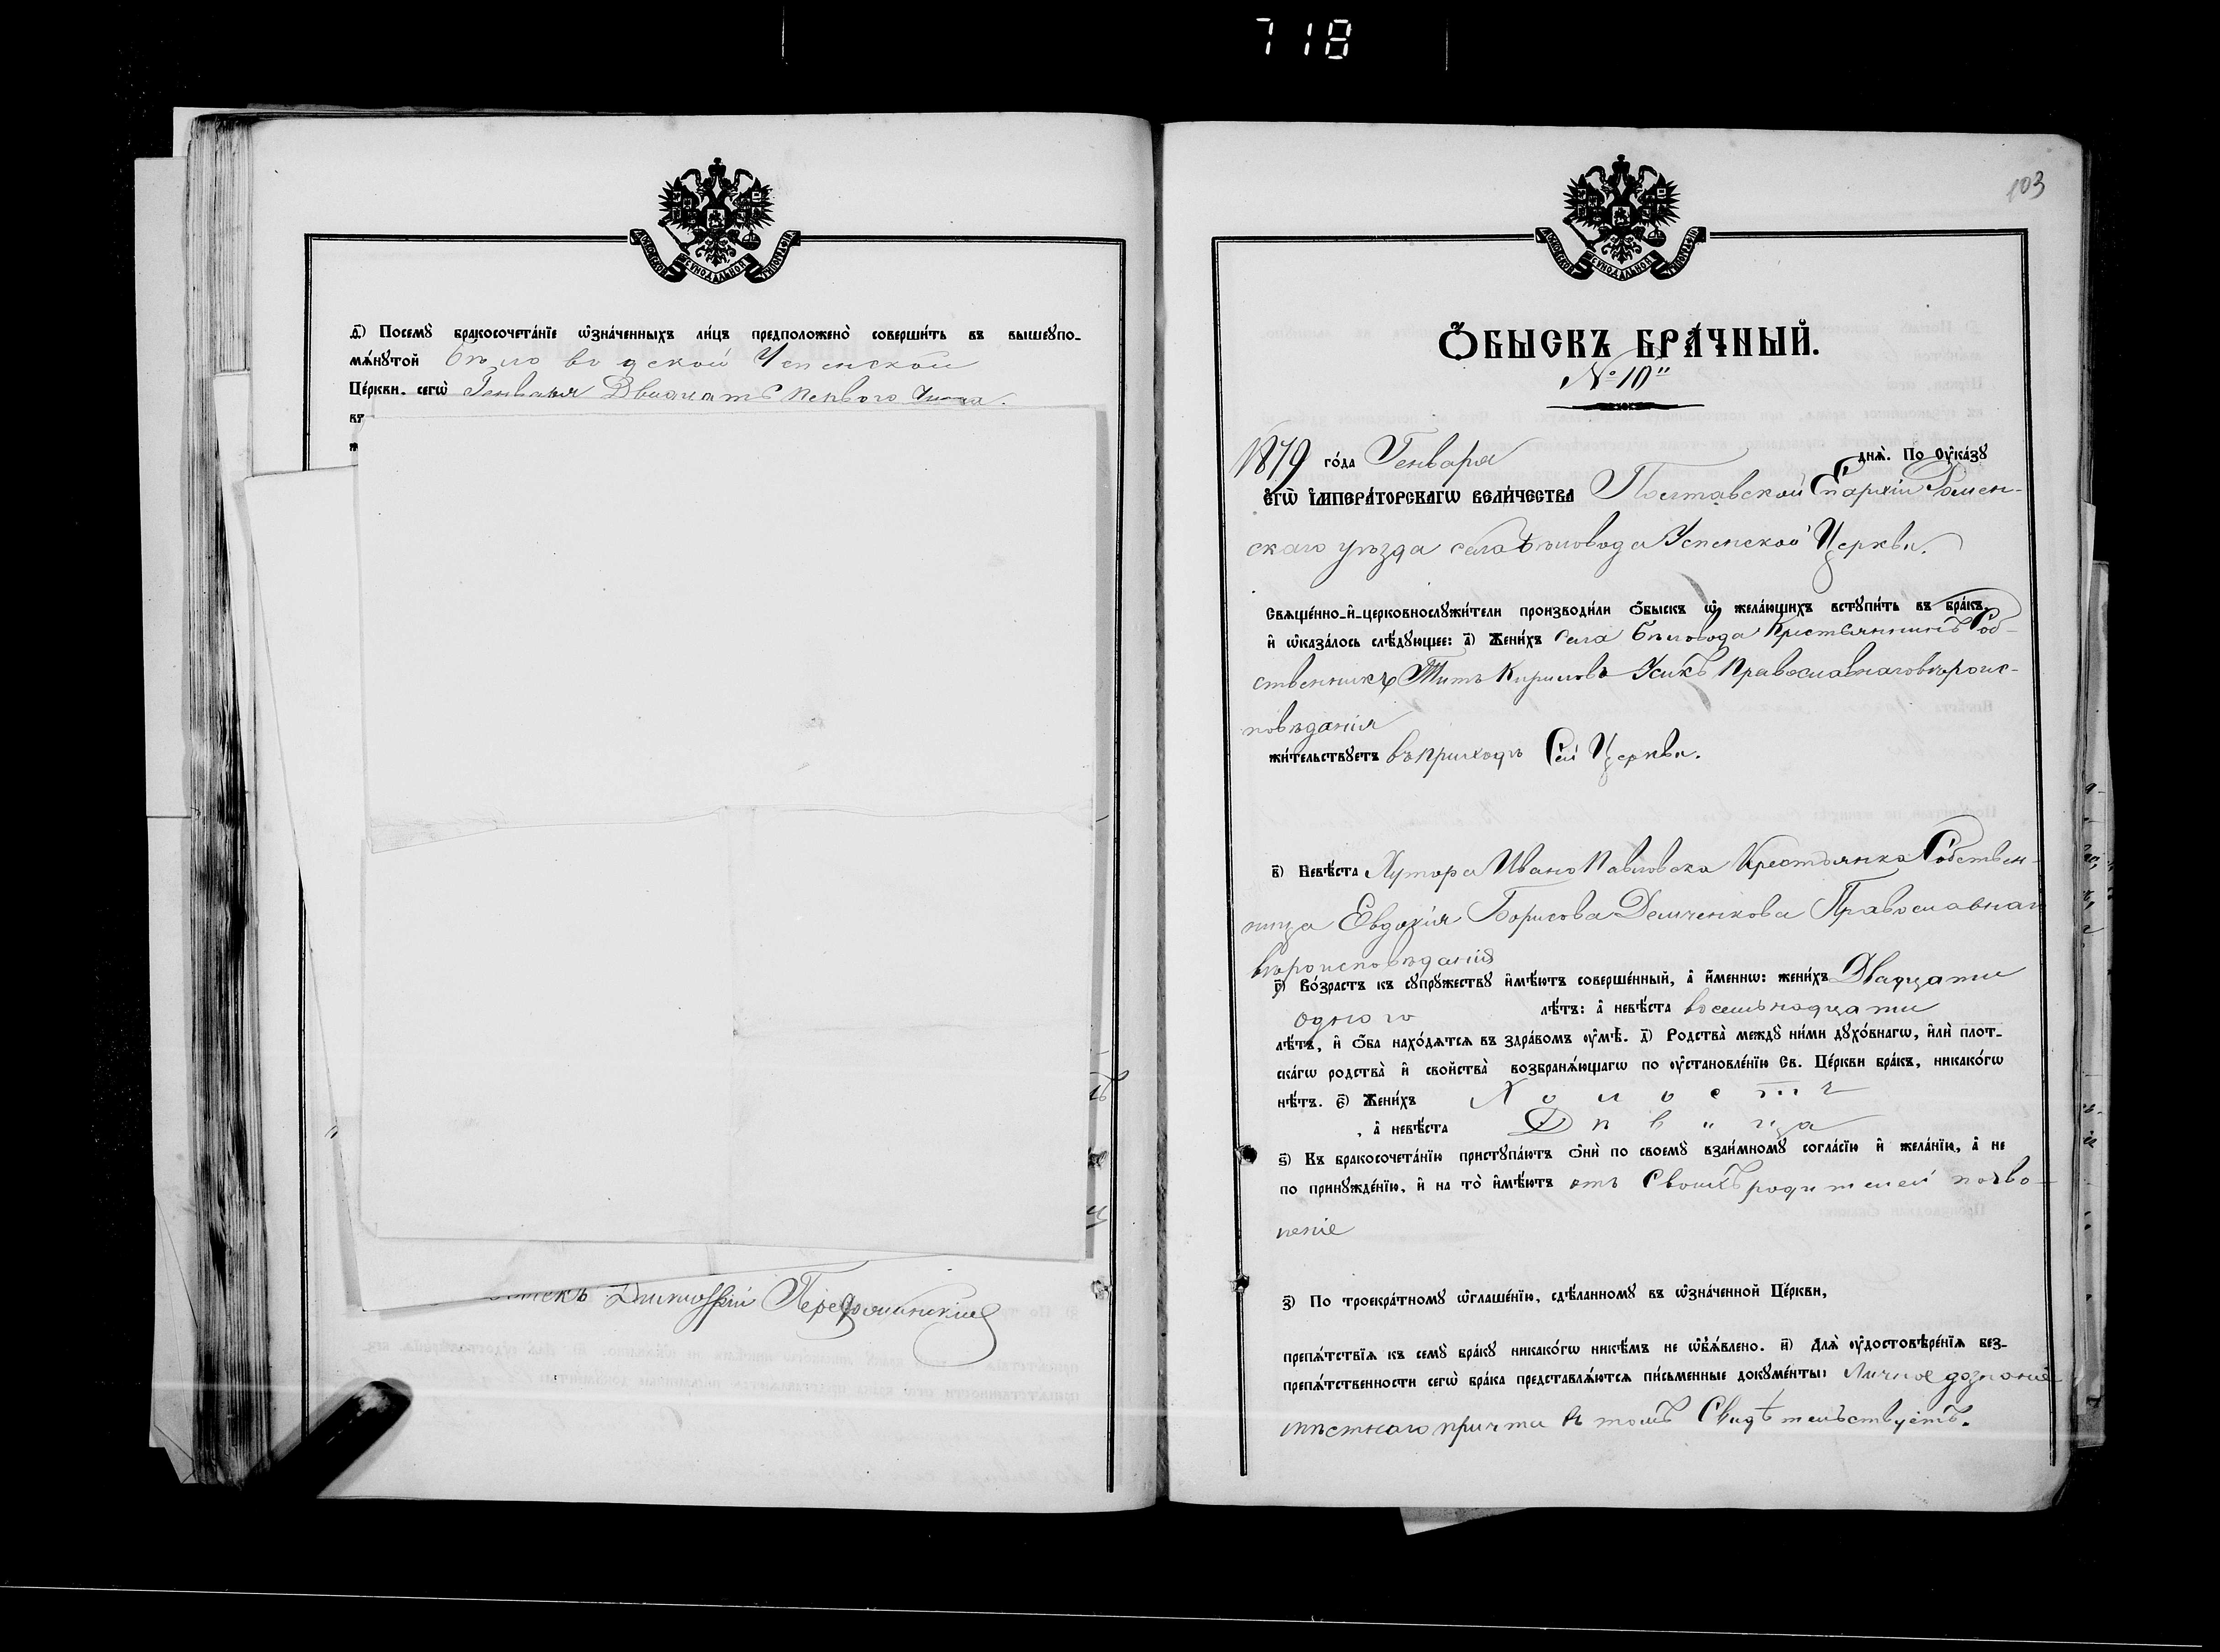 718
МОСКОВСКОЙ СѴНОДАЛЬНОЙ ТѴПОГРАФІИ
д҃) Посемꙋ бракосочета́нїе ѡ҆зна́ченныхъ ли́цъ предположено̀ соверши́ть въ вышеꙋпо-
мѧ́нꙋтой Бѣловодской Успенской
Це́ркви. сегѡ̀ Генваря Двадцать первого Числа.
въ
Димитрій
103
МОСКОВСКОЙ СѴНОДАЛЬНОЙ ТѴПОГРАФІИ
Ѻ҆БЫСКЪ БРА́ЧНЫЙ.
№ 10"
1879 го́да Генваря днѧ̀. По Оу҆ка́зꙋ
є҆гѡ̀ І҆МПЕРА́ТОРСКАГѠ ВЕЛИ́ЧЕСТВА Полтавской Епархіи Ромен-
скаго уѣзда села Бѣловода Успенской Церкви.
Свѧще́нно-и҆-церковнослꙋжи́тели производи́ли ѻ҆́быскъ ѡ҆ жела́ющихъ встꙋпи́ть въ бра́къ,
и҆ ѡ҆каза́лось слѣ́дꙋющее: а҃) Жени́хъ села Бѣловода Крестьянинъ Соб-
ственникъ Титъ Кириловъ Усикъ Православнаго вѣроис-
повѣданія
жи́тельствꙋетъ въ приходѣ Сей Церкви.
в҃) Невѣ́ста Хутора Ивано Павловска Крестьянка Собствен-
ница Евдокія Борисова Демченкова Православнаг
вѣроисповѣданія
г҃) Во́зрастъ къ сꙋпрꙋ́жествꙋ и҆мѣ́ютъ соверше́нный, а҆ и҆́менно: жени́хъ Двадцати
одного лѣ́тъ: а҆ невѣ́ста восемьнадцати
лѣ́тъ, и҆ ѻ҆́ба нахо́дѧтсѧ въ здра́вомъ оу҆мѣ̀. д҃) Родства̀ междꙋ̀ ни́ми дꙋхо́внагѡ, и҆лѝ плот-
ска́гѡ родства̀ и҆ сво́йства̀ возбранѧ́ющагѡ по оу҆становле́нїю Св. Це́ркви бра́къ, никако́гѡ
нѣ́тъ. є҃) Жени́хъ Холостъ
, а҆ невѣ́ста Дѣвица
ѕ҃) Къ бракосочета́нїю пристꙋпа́ютъ ѻ҆нѝ по своемꙋ̀ взаи́мномꙋ согла́сїю и҆ жела́нїю, а҆ не
по принꙋжде́нїю, и҆ на то̀ и҆мѣ́ютъ отъ Своихъ родителей позво-
леніе
з҃) По троекра́тномꙋ ѡ҆глаше́нїю, сдѣ́ланномꙋ въ ѡ҆зна́ченной Це́ркви,
препѧ́тствїѧ къ семꙋ̀ бра́кꙋ никако́гѡ никѣ́мъ не ѡ҆б̾ѧ́влено. и҃) Длѧ̀ оу҆достовѣре́нїѧ без-
препѧ́тственности сегѡ̀ бра́ка представлѧ́ютсѧ пи́сьменные докꙋме́нты: Личное дознаніе
мѣстнаго причта въ томъ Свидѣтельствуетъ.